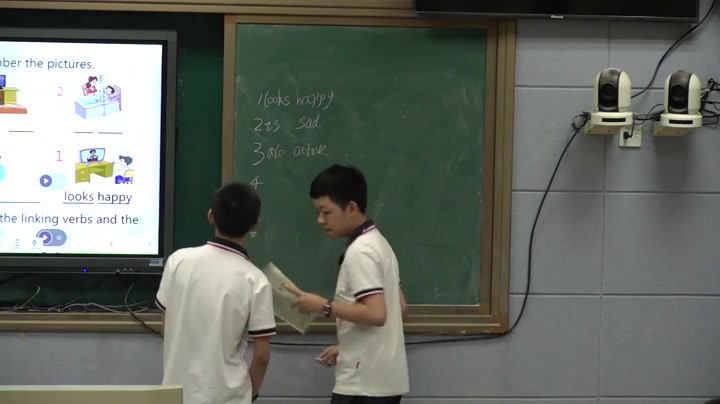 ber the pictures.
2
1
looks happy
the linking verbs and the
1 looks happy
2 is sad
3 are active
4